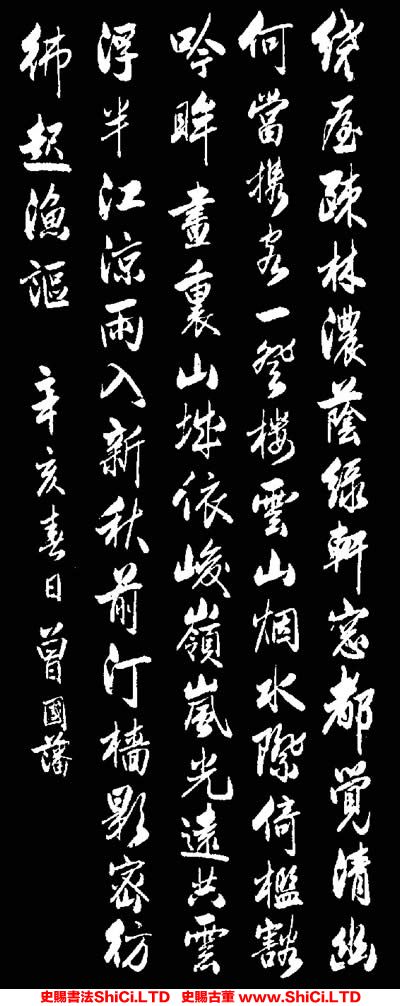 绕屋疎林濃蔭绿軒窓都覺清幽
何當携客一登樓雲山烟水際倚檻豁
吟眸畫裏山城依峻嶺嵐光遠共雲
浮半江涼雨入新秋前汀檣影密彷
彿起漁謳 辛亥春日曾國藩
史賜書法ShiCi.LTD 史賜古董 www.ShiCi.LTD